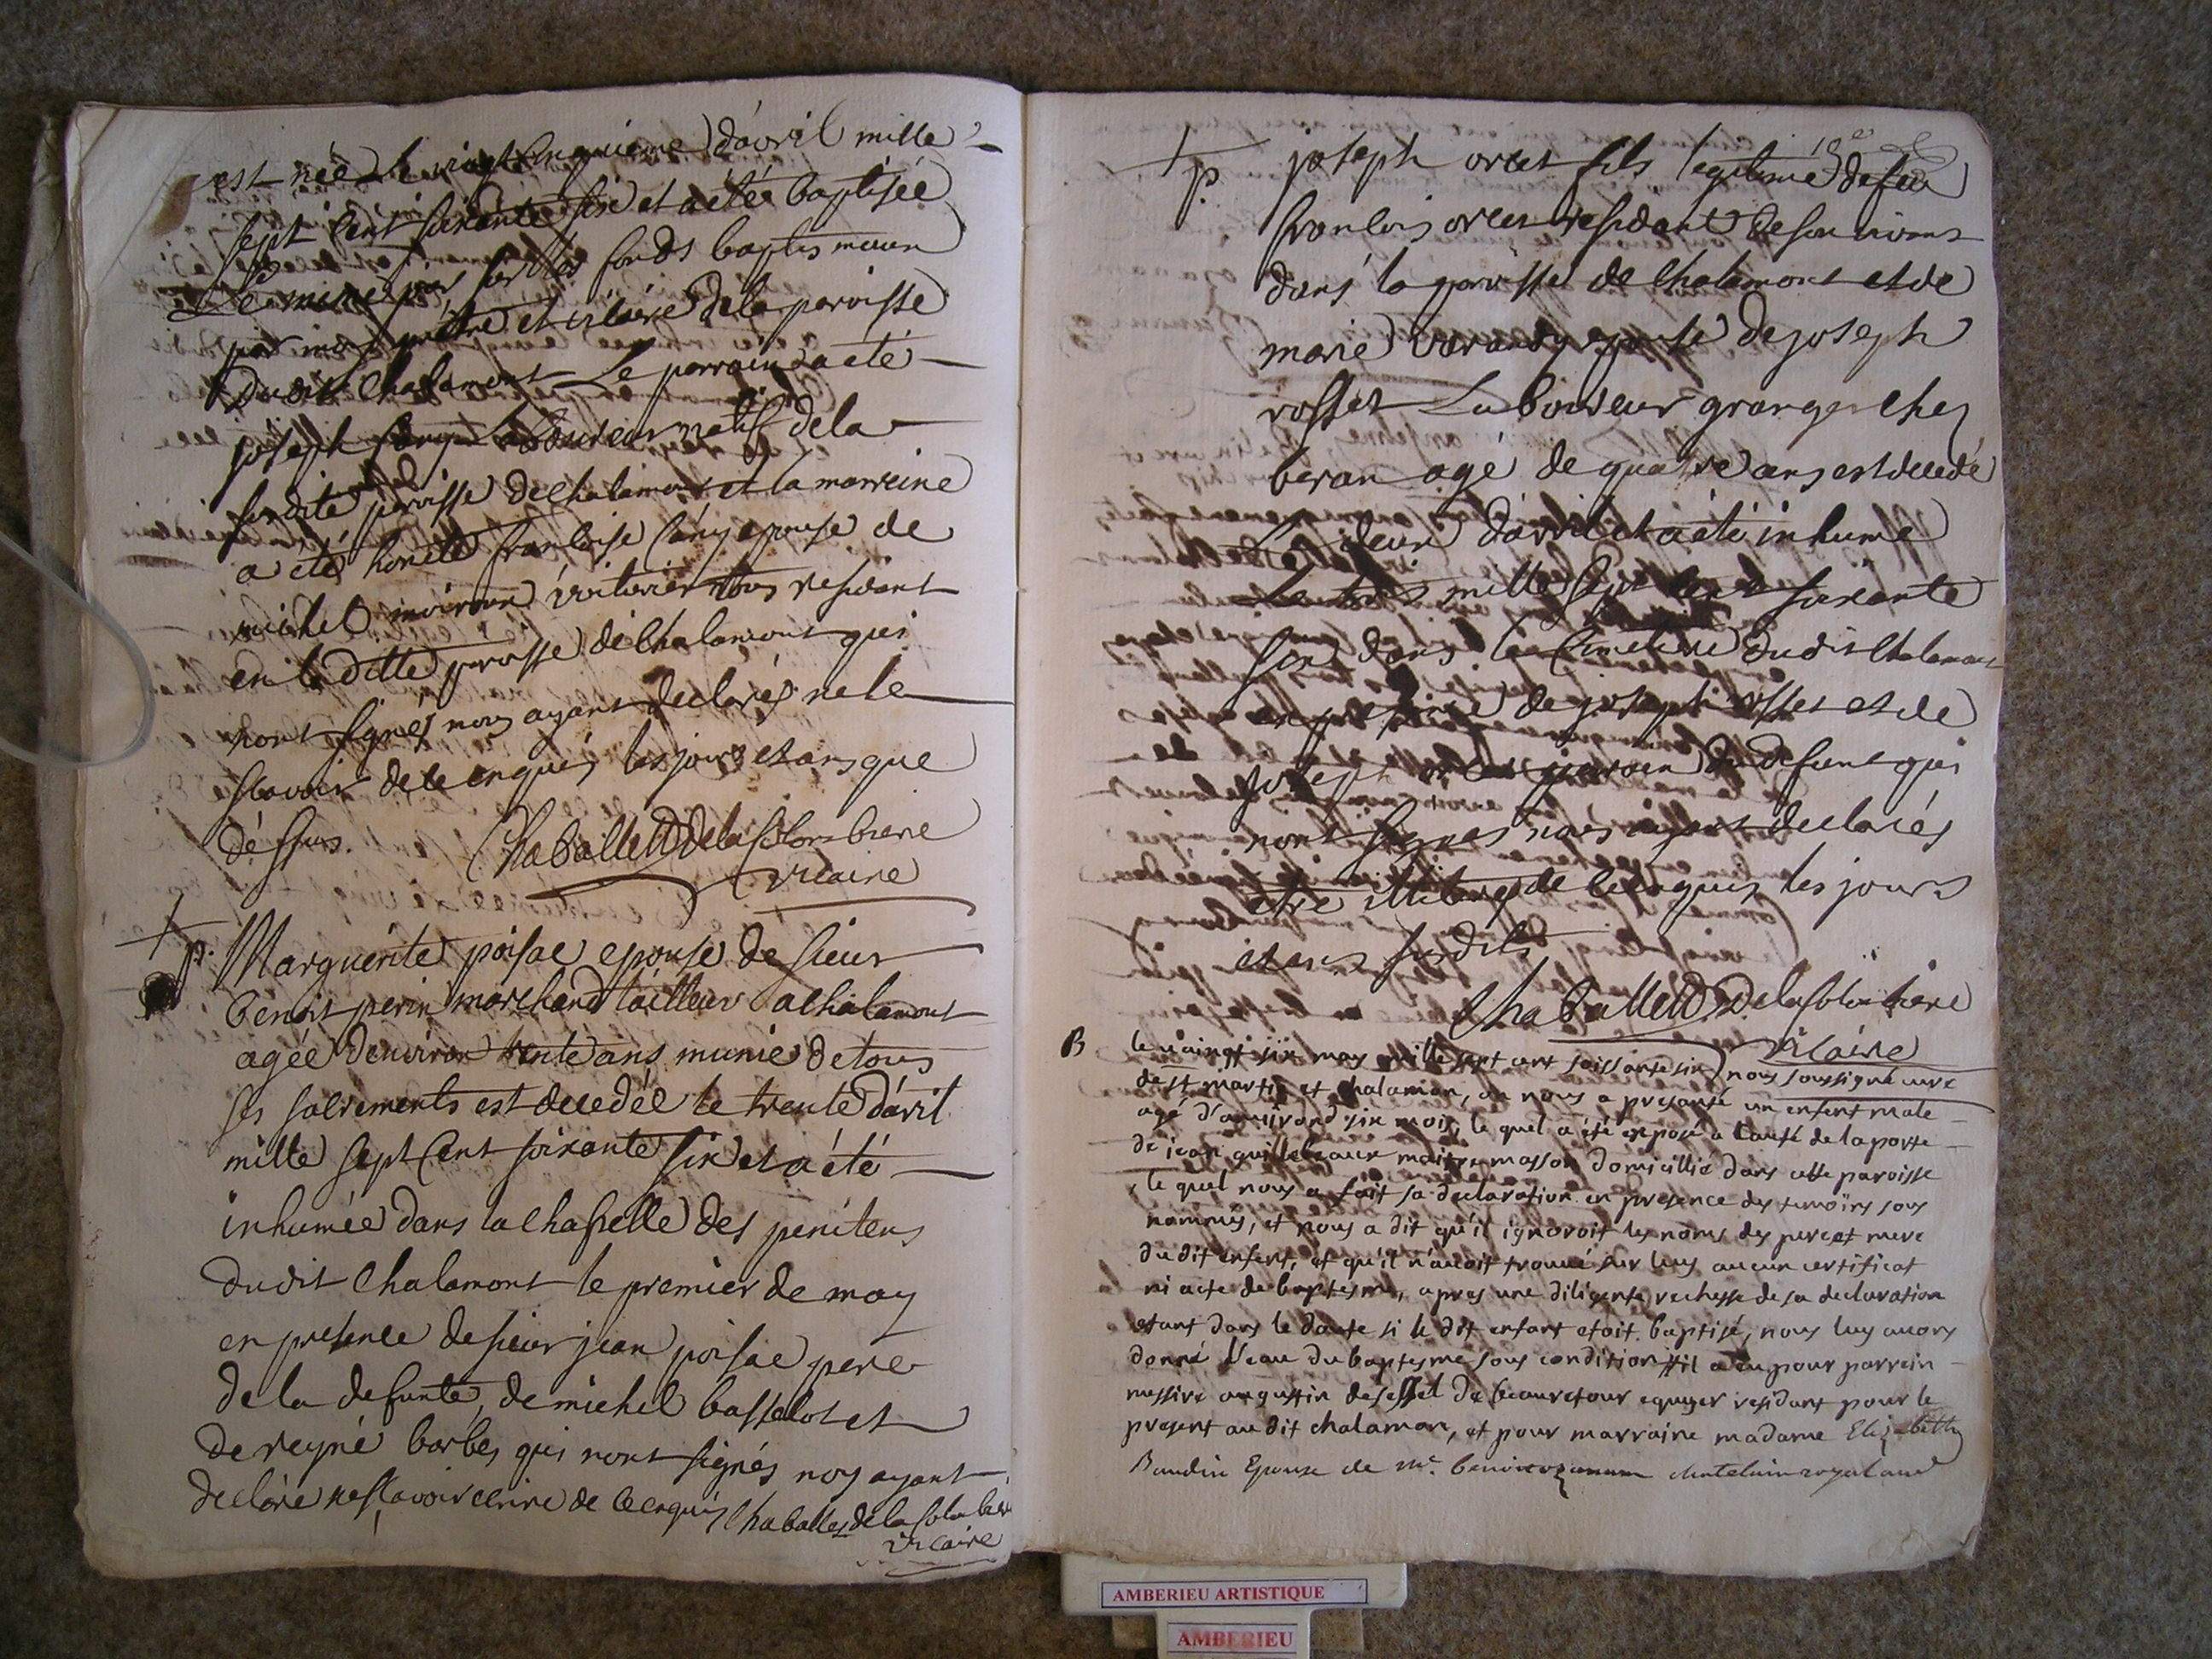 est née le vingt cinquieme d'avril mille
sept cent soixante six et a étée baptisée
le même jour sur les fonds baptismaux
par moy prêtre et vicaire de la paroisse
dudit Chalamont Le parrain a été
joseph Laboureur natif de la
susdite paroisse de Chalamont et la marreine
a été honête francoise epouse de
michel voiturier tous residant
en la ditte paroisse de Chalamont qui
nont signés nous ayant declarés ne le
scavoir de ce enquis les jours et ans que
déssus. Chaballet De la Colombiere
vicaire
+ p. Marguerite poisac epouse de sieur
benoit perin marchand tailleur a Chalamont
agée denviron trente ans munie de tous
ses sacrements est decedée le trente d'avril
mille sept cent soixante six et a été
inhumée dans la Chapelle des penitens
dudit Chalamont le premier de may
en presence de sieur jean poisac pere
de la defunte, de michel basselot et
de reyné barbes qui nont signés nous ayant
declaré ne scavoir ecrire de ce enquis Chaballet de la Colombiere
vicaire
+ p. joseph orcet fils legitime de feu
francois orcet residant de son vivant
dans la paroisse de Chalamont et de
marie epouse de joseph
rosset Laboureur granger chez
beran agé de quatre ans est decedé
Le deux d'avril et a été inhumé
Le trois mille sept cent soixante
six dans le Cimetiere dudit Chalamont
en presence de joseph rosset et de
joseph orcet parrain du defunt qui
nont signes nous ayant declarés
etre illiteres de ce enquis les jours
et ans susdits
Chaballet De la Colombiere
vicaire
B le vaingt six may mille sept cent soissante six nous soussigné curé
de st martin et chalamon, on nous a presanté un enfent male
agé d'anvirond six mois, le quel a été exposé a cauté de la porte
de jean guillebeaux maitre masson domicillié dans cette paroisse
, le quel nous a fait sa declaration en presence des temoins sous
nommés, et nous a dit qu'il ignoroit les noms des pere et mere
du dit enfent, et qu'il n'avoit trouvé sur luy aucun certificat
ni acte de baptesme, apres une diligente recherse de sa declaration
etant dans le doute si le dit enfant etoit baptisé, nous luy avons
donné l'eau du baptesme sous condition il a eu pour parrein
messire augustin de seissel de beauretour equyer residant pour le
present au dit chalamon, et pour marraine madame Elizabeth
Baudin Epouse de mr. benoit ozanam chatelain royal au
AMBERIEU ARTISTIQUE
AMBERIEU